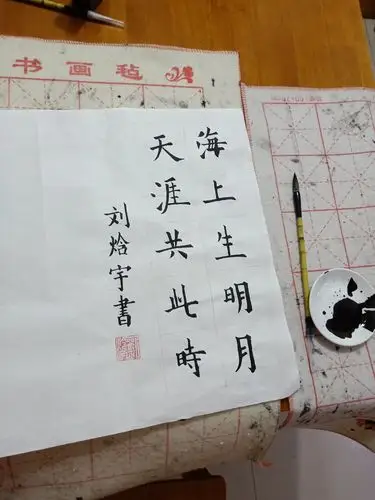 书画毡
海上生明月
天涯共此時
刘焓宇書